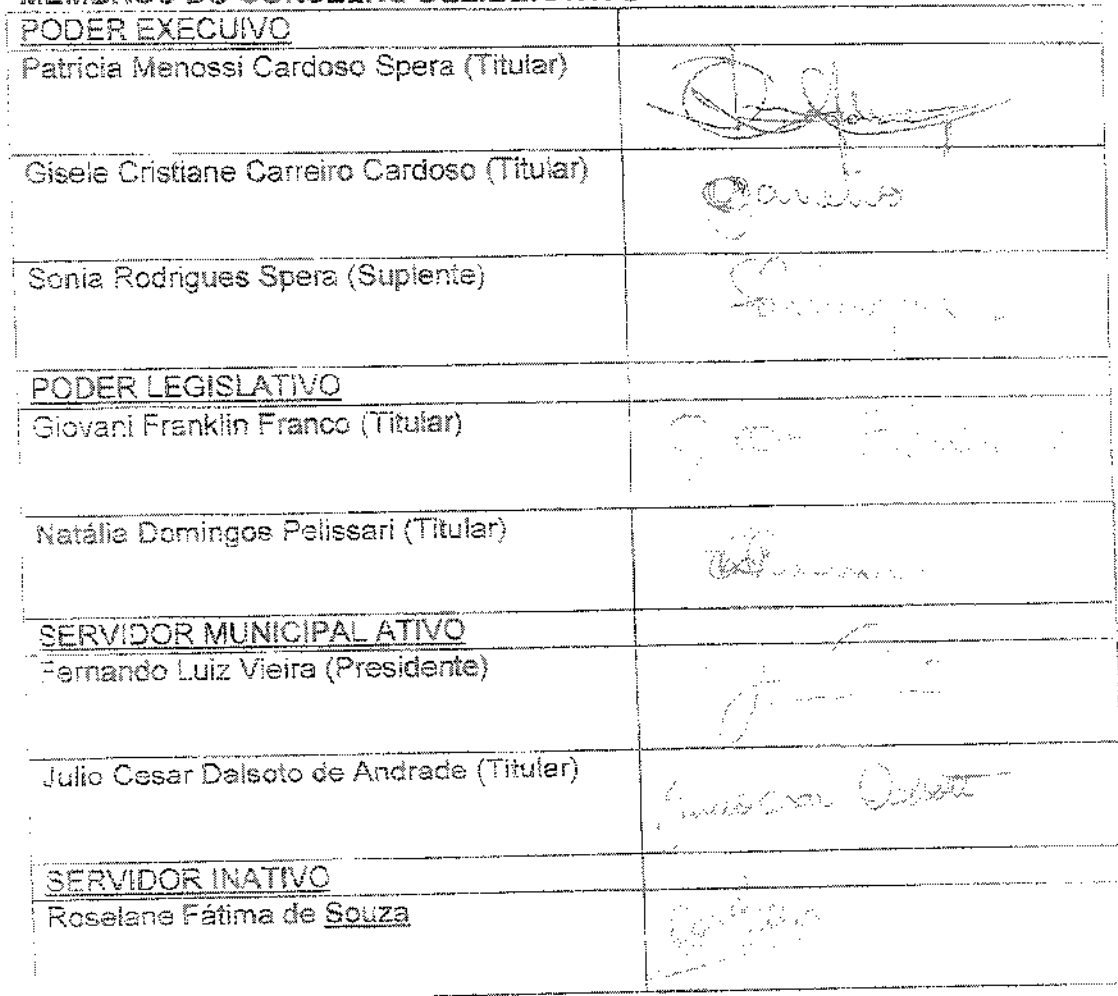 MEMBROS DO CONSELHO DELIBERATIVO
PODER EXECUIVO
Patricia Menossi Cardoso Spera (Titular)
Gisele Cristiane Carreiro Cardoso (Titular)
Carreiro
Sonia Rodrigues Spera (Suplente)
PODER LEGISLATIVO
Giovani Franklin Franco (Titular)
Natália Domingos Pelissari (Titular)
SERVIDOR MUNICIPAL ATIVO
Fernando Luiz Vieira (Presidente)
Julio Cesar Dalsoto de Andrade (Titular)
SERVIDOR INATIVO
Roselane Fátima de Souza